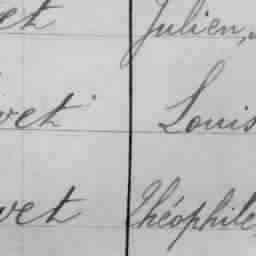 et Julien,
vet Louis
vet Théophile,